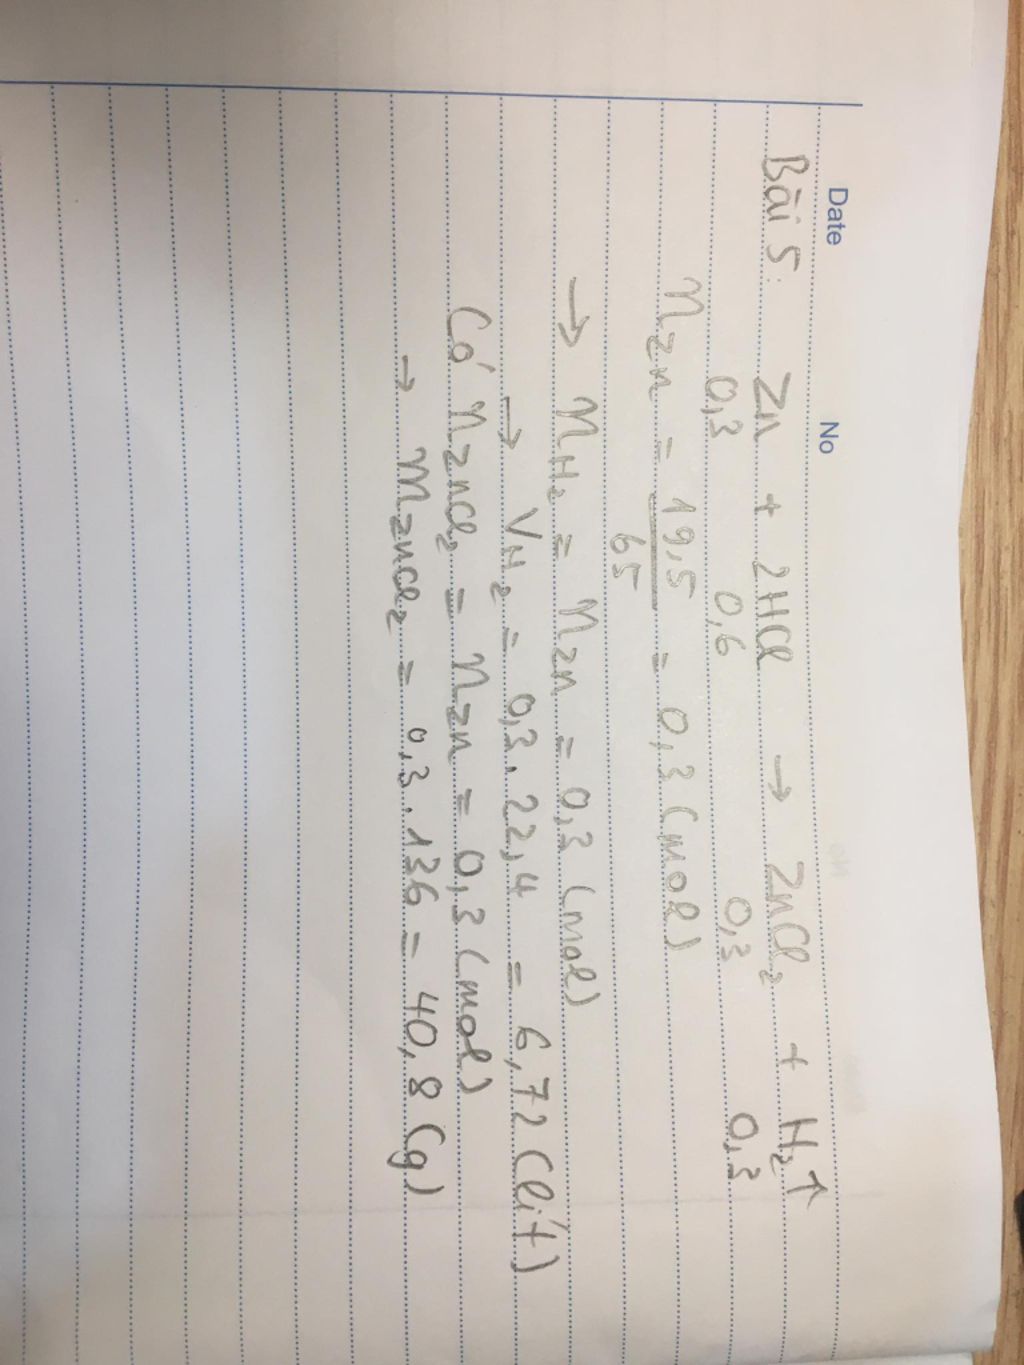 Date No
Bài 5: Zn + 2HCl → ZnCl₂ + H₂↑
0,3 0,6 0,3 0,3
nZn = 19,5/65 = 0,3 (mol)
→ nH₂ = nZn = 0,3 (mol)
→ VH₂ = 0,3.22,4 = 6,72 (lít)
Có nZnCl₂ = nZn = 0,3 (mol)
→ mZnCl₂ = 0,3.136 = 40,8 (g)